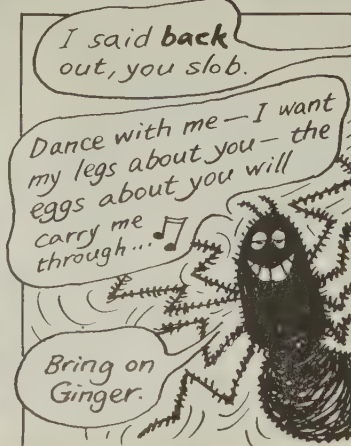 I said back
out, you slob.
Dance with me — I want
my legs about you — the
eggs about you will
carry me
through...
Bring on
Ginger.